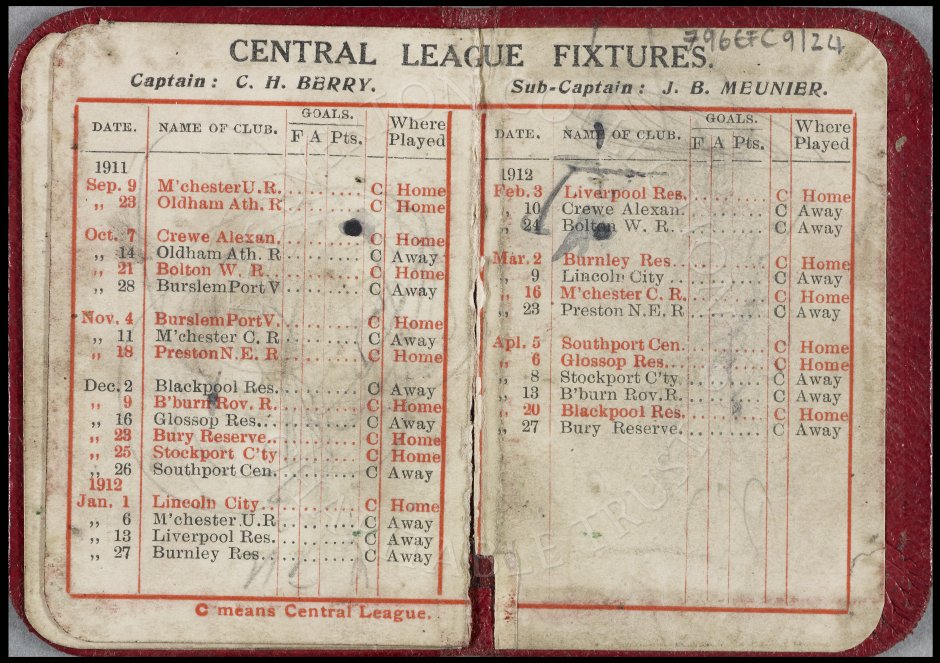 796EFC 9/24
CENTRAL LEAGUE FIXTURES.
Captain: C. H. BERRY. Sub-Captain: J. B. MEUNIER.
DATE. NAME OF CLUB. GOALS. F A Pts. Where Played
1911
Sep. 9 M'chester U. R. C Home
„ 23 Oldham Ath. R C Home
Oct. 7 Crewe Alexan. C Home
„ 14 Oldham Ath. R C Away
„ 21 Bolton W. R. C Home
„ 28 Burslem Port V C Away
Nov. 4 Burslem Port V. C Home
„ 11 M'chester C. R C Away
„ 18 Preston N. E. R C Home
Dec. 2 Blackpool Res. C Away
„ 9 B'burn Rov. R. C Home
„ 16 Glossop Res. C Away
„ 23 Bury Reserve. C Home
„ 25 Stockport C'ty C Home
„ 26 Southport Cen. C Away
1912
Jan. 1 Lincoln City C Home
„ 6 M'chester U. R C Away
„ 13 Liverpool Res. C Away
„ 27 Burnley Res. C Away
C means Central League.
DATE. NAME OF CLUB. GOALS. F A Pts. Where Played
1912
Feb. 3 Liverpool Res. C Home
„ 10 Crewe Alexan. C Away
„ 24 Bolton W. R. C Away
Mar. 2 Burnley Res. C Home
„ 9 Lincoln City C Away
„ 16 M'chester C. R. C Home
„ 23 Preston N. E. R C Away
Apl. 5 Southport Cen. C Home
„ 6 Glossop Res. C Home
„ 8 Stockport C'ty C Away
„ 13 B'burn Rov. R. C Away
„ 20 Blackpool Res. C Home
„ 27 Bury Reserve. C Away